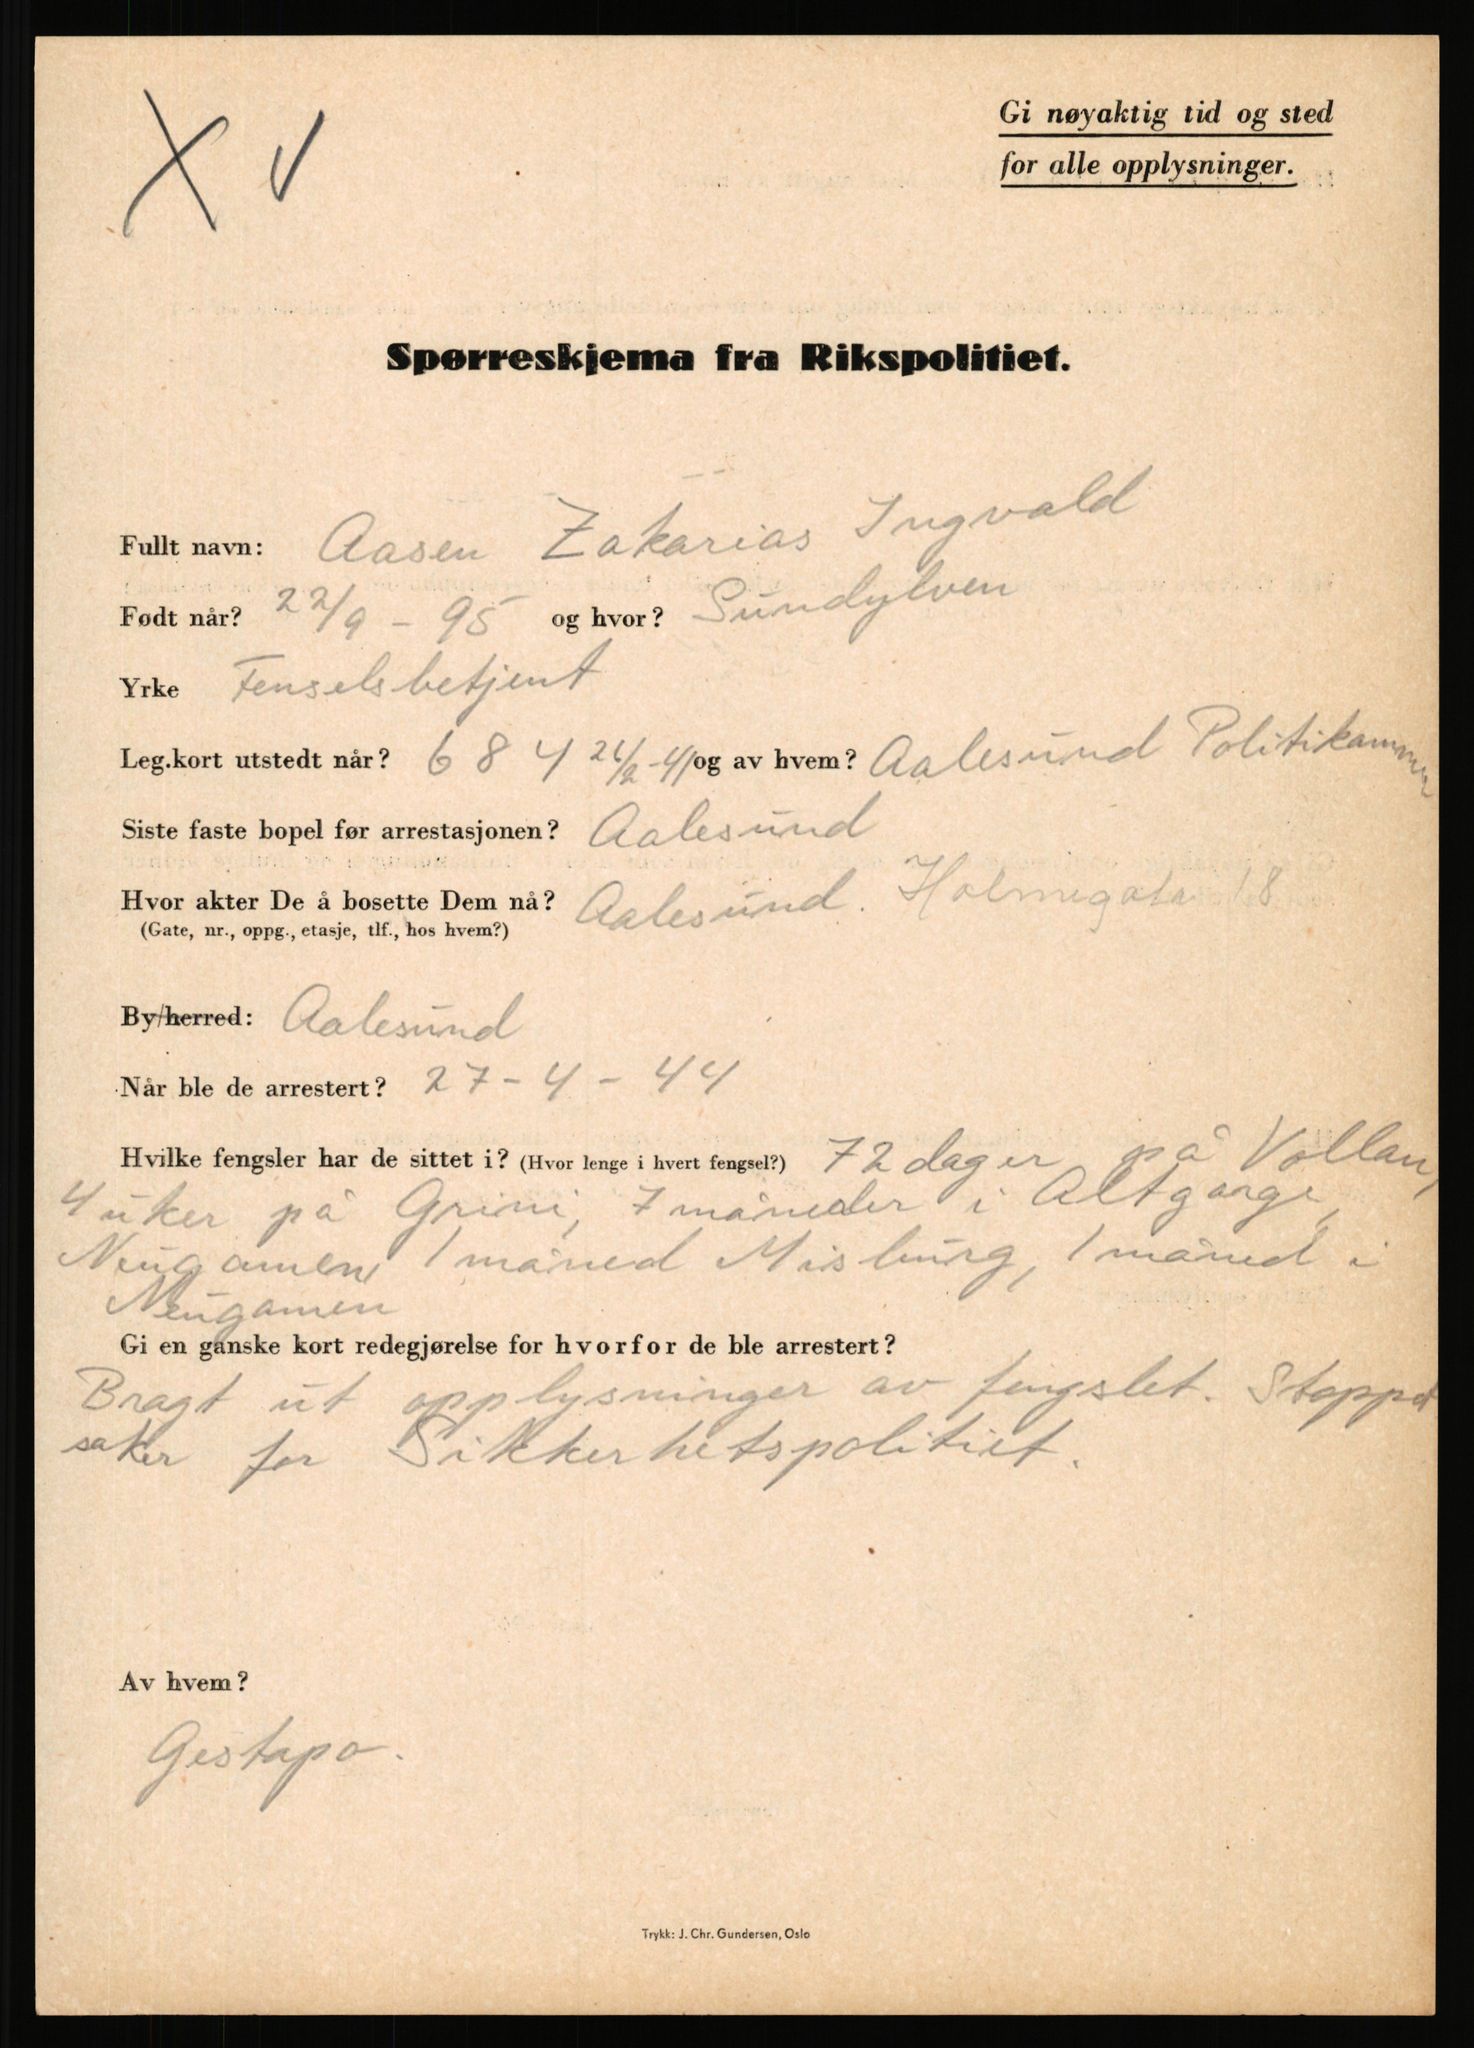 X V
Gi nøyaktig tid og sted
for alle opplysninger.
Spørreskjema fra Rikspolitiet.
Fullt navn: Aasen Zakarias Ingvald
Født når? 22/9 - 95 og hvor? Sundylven
Yrke Fenselsbetjent
Leg.kort utstedt når? 684 24/2-41 og av hvem? Aalesund Politikammer
Siste faste bopel før arrestasjonen? Aalesund
Hvor akter De å bosette Dem nå? Aalesund. Holmegata 18
(Gate, nr., oppg., etasje, tlf., hos hvem?)
By/herred: Aalesund
Når ble de arrestert? 27-4-44
Hvilke fengsler har de sittet i? (Hvor lenge i hvert fengsel?) 72 dager på Vollan,
4 uker på Grini, 7 måneder i Altgange,
Neugamen 1 måned Misburg, 1 måned i
Neugamen
Gi en ganske kort redegjørelse for hvorfor de ble arrestert?
Bragt ut opplysninger av fengslet. Stoppet
saker for Sikkerhetspolitiet.
Av hvem?
Gestapo.
Trykk: J. Chr. Gundersen, Oslo